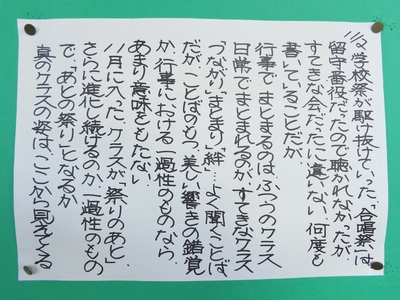 11/2 学校祭が駆け抜けていった。「合唱祭」は
留守番役だったので聴かれなかったが
すてきな会だったに違いない。何度も
書いていることだが、
行事でまとまるのは、ふつうのクラス
日常でまとまれるのが、すてきなクラス
「つながり」「まとまり」「絆」…よく聞くことば
だが、ことばのもつ、美しい響きの錯覚
が、行事における一過性のものなら、
あまり意味をもたない。
11月に入った。クラスが「祭りのあと」、
さらに進化し続けるのか、一過性のもの
で、「あとの祭り」となるか
真のクラスの姿は、ここから見えてくる